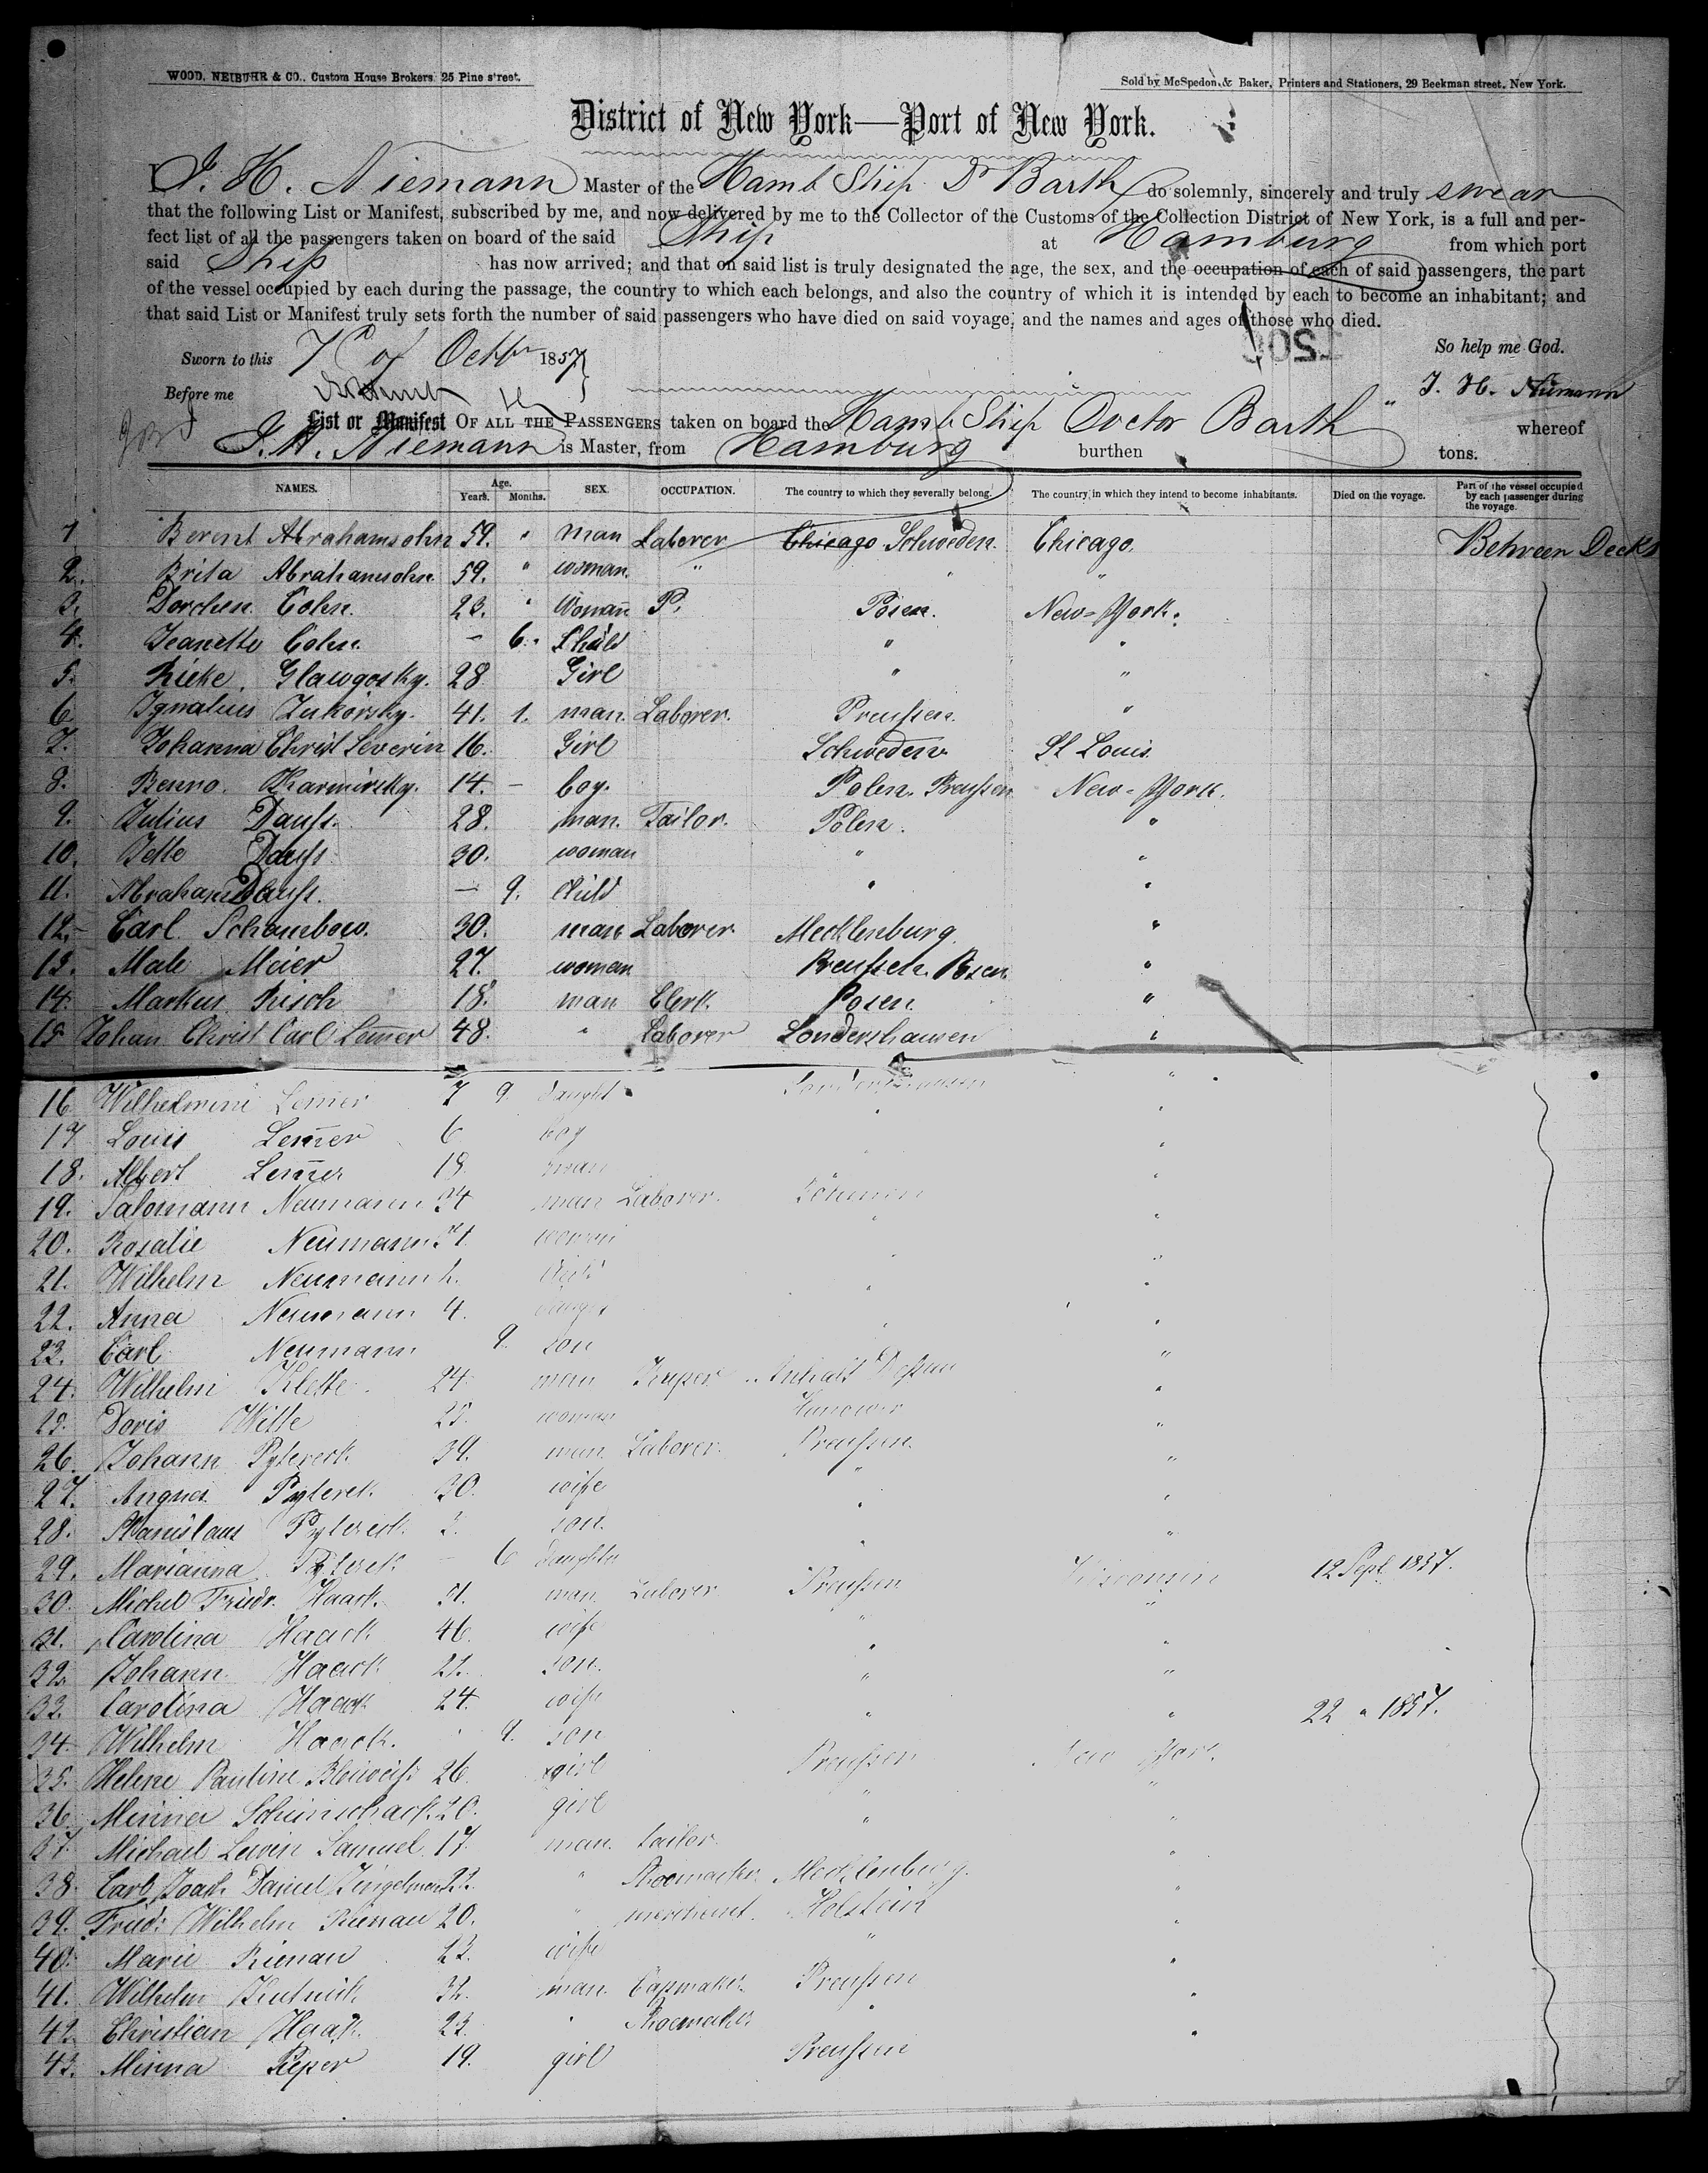 WOOD, NEIBUHR & CO., Custom House Brokers, 25 Pine street.
Sold by McSpedon & Baker, Printers and Stationers, 29 Beekman street, New York.
District of New York—Port of New York.
I J. H. Niemann Master of the Hamb Ship Dr Barth do solemnly, sincerely and truly swear
that the following List or Manifest, subscribed by me, and now delivered by me to the Collector of the Customs of the Collection District of New York, is a full and per-
fect list of all the passengers taken on board of the said Ship at Hamburg from which port
said Ship has now arrived; and that on said list is truly designated the age, the sex, and the occupation of each of said passengers, the part
of the vessel occupied by each during the passage, the country to which each belongs, and also the country of which it is intended by each to become an inhabitant; and
that said List or Manifest truly sets forth the number of said passengers who have died on said voyage, and the names and ages of those who died.
Sworn to this 7 of Octbr 1857 So help me God.
Before me J. H. Niemann
List or Manifest OF ALL THE PASSENGERS taken on board the Hamb Ship Doctor Barth whereof
J. H. Niemann is Master, from Hamburg burthen tons.
NAMES. Age. Years. Months. SEX. OCCUPATION. The country to which they severally belong. The country in which they intend to become inhabitants. Died on the voyage. Part of the vessel occupied by each passenger during the voyage.
1 Berent Abrahamsohn 59. " man Laborer Chicago Schweden. Chicago. Between Decks
2. Brita Abrahamsohn. 59. " woman. " " "
3. Dorchen Cohn. 23. " Woman P. Posen. New-York.
4. Jeanette Cohn. – 6. Child " "
5. Rieke Glawgosky. 28 Girl " "
6 Ignatius Zukorsky. 41. 1. man. Laborer. Preußen. "
7. Johanna Christ Severin 16. Girl Schweden St Louis.
8. Benno 14. – boy. Polen. Preußen New-York.
9. Julius Dauß. 28. man. Tailor. Polen. "
10. Jette Dauß 30. woman " "
11. Abraham Dauß. – 9. Child " "
12. Carl Schambow. 30. man Laborer Mecklenburg "
13. Male Meier 27. woman Preußen. Posen. "
14. Markus Risch 18. man Clerk. Posen. "
15 Johan Christ Carl Lem̄er 48. " Laborer Sondershausen "
16 Wilhelmine Lem̄er 7 9. daught Sondershausen "
17 Louis Lem̄er 6 boy " "
18. Albert Lem̄er 18. man " "
19. Salomann Neumann 34 man Laborer. Böhmen "
20. Rosalie Neumann woman " "
21. Wilhelm Neumann " "
22. Anna Neumann 4. " "
23. Carl Neumann 9. son " "
24. Wilhelm Klette. 24. man Anhalt Deßau "
25. Doris Witte 25. woman Hanover "
26. Johann Pytereck 39. man Laborer. Preußen. "
27. Angnes Pyterek. 30. wife " "
28. Stanislaus Pytereck son. " "
29. Marianna Pyterek – 6 daughter " " 12 Sept. 1857.
30. Michel Friedr. Haack. 51. man. Laborer Preußen Wisconsin
31. Carolina Haack 46. wife " "
32. Johann Haack 22. son. " "
33. Carolina Haack 24. wife " "
34. Wilhelm Haack. 9. son " " 22 " 1857.
35. Helene Pauline Bleiweiß 26. girl Preußen New York.
36. Minna 20. girl " "
37. Michael Lewin Samuel 17. man. Tailor " "
38. Carl Joach Daniel 22. " Shoemacker Mecklenburg. "
39. Friedr Wilhelm Rienau 20. " merchant. Holstein "
40. Marie Rienau 22. wife " "
41. Wilhelm 32. man. Capmaker Preußen "
42. Christian Haack 23. " Shoemaker " "
43. Minna Pieper 19. girl Preußen "